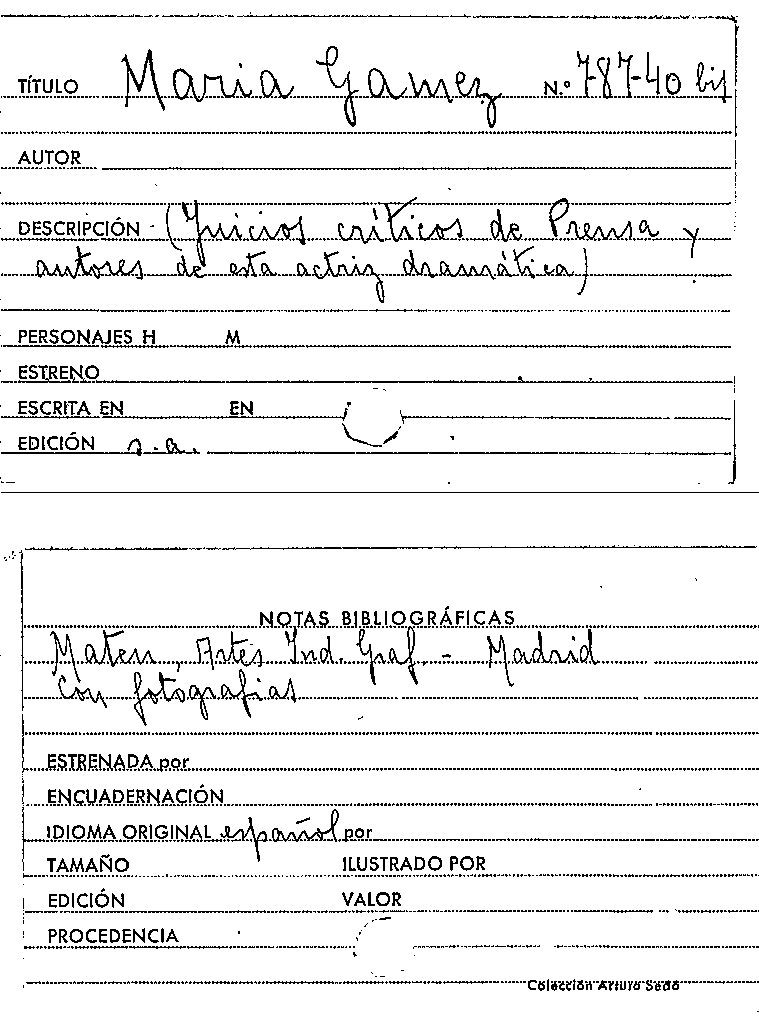 TÍTULO Maria Gamez N.º 787-40 bis
AUTOR
DESCRIPCIÓN (Juicios críticos de Prensa y
autores de esta actriz dramática)
PERSONAJES H M
ESTRENO
ESCRITA EN EN
EDICIÓN s.a.
NOTAS BIBLIOGRÁFICAS
Mateu, Artes Ind. Graf. - Madrid
con fotografias
ESTRENADA por
ENCUADERNACIÓN
IDIOMA ORIGINAL español por
TAMAÑO ILUSTRADO POR
EDICIÓN VALOR
PROCEDENCIA
Colección Arturo Sedó